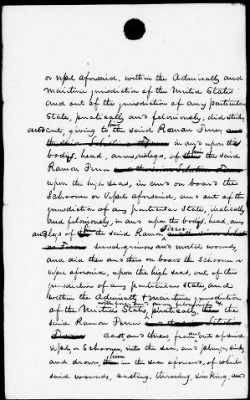 or vessel aforesaid, within the Admiralty and
maritime jurisdiction of the United States
and out of the jurisdiction of any particular
State, piratically and feloniously, did stab,
and cut, giving to the said Ramon Perro
in and upon the
body, head, arms & legs, of the said
Ramon Perro
upon the high seas, in and on board the
Schooner or Vessel aforesaid, and out of the
jurisdiction of any particular State, piratically
and feloniously, in and upon the body, head, arms
& legs of the said Ramon Perro
several grievous and mortal wounds,
and did then and there on board the Schooner or
Vessel aforesaid, upon the high seas, out of the
jurisdiction of any particular State, and
within the Admiralty & maritime jurisdiction
of the United States, piratically, the
said Ramon Perro
cast, and throw, from out of said
Vessel or Schooner, into the sea, and plunge, sink,
and drown, him in the sea aforesaid, of which
said wounds, casting, throwing, sinking, and